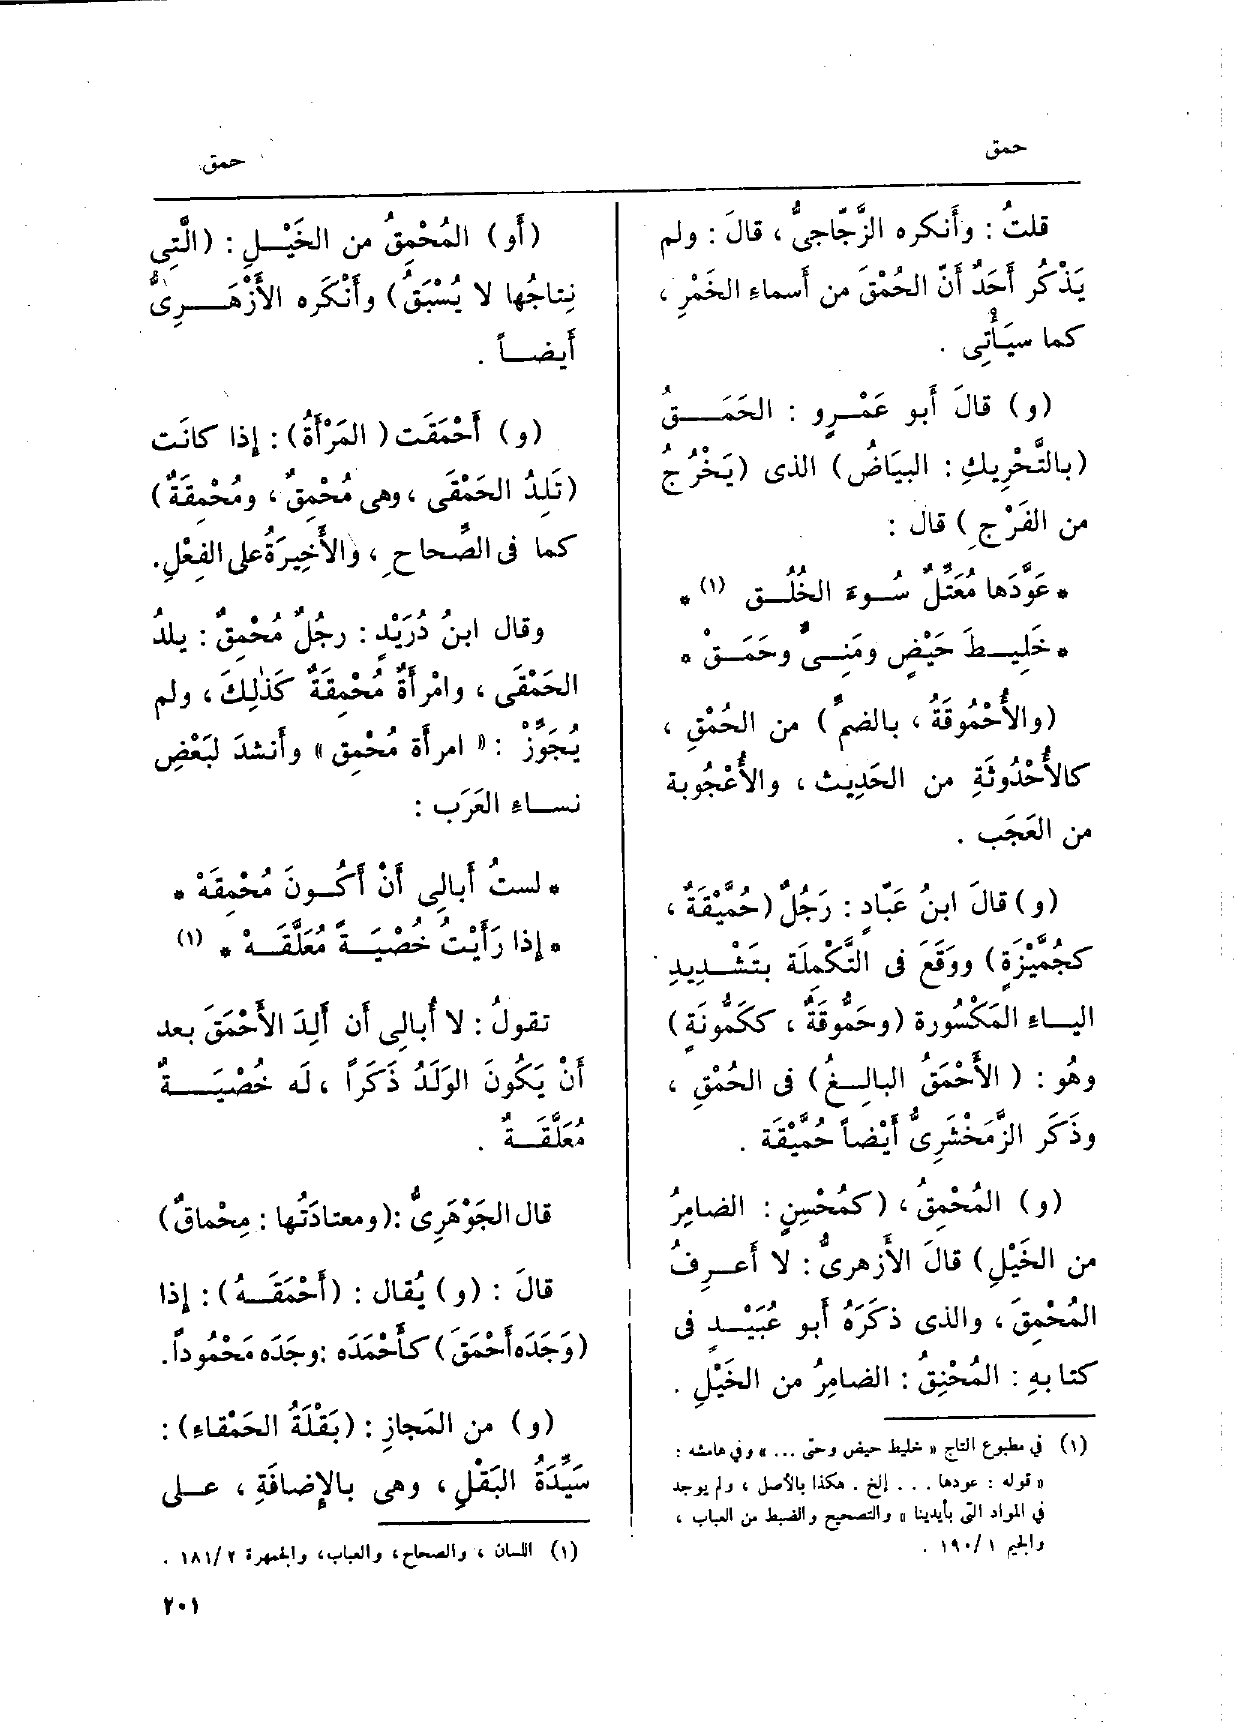 حمق
حمق
قلتُ : وأَنكره الزَّجّاجىُّ ، قالَ : ولم
يَذْكُر أَحَدٌ أَنّ الحُمْقَ من أَسماءِ الخَمْرِ ،
كما سيَأْتِى .
(و) قالَ أَبو عَمْـرٍو : الحَمَـــقُ
(بالتَّحْرِيكِ : البيَاضُ) الذى (يَخْرُجُ
من الفَرْجِ) قال :
* عَوَّدَها مُعَتَلٌّ سُـوءَ الخُلُـق (١) *
* خَلِيـطَ حَيْضٍ ومَنِـىٍّ وحَمَـقْ *
(والأُحْمُوقَةُ ، بالضمِّ) من الحُمْقِ ،
كالأُحْدُوثَةِ من الحَدِيث ، والأُعْجُوبة
من العَجَب .
(و) قالَ ابنُ عَبّادٍ : رَجُلٌ (حُمَّيْقَةٌ ،
كجُمَّيْزَةٍ) ووَقَعَ فى التَّكْمِلَة بتَشْـدِيدِ
اليـاء المَكْسُورة (وحَمُّوقَةٌ ، ككَمُّونَةٍ)
وهُو : (الأَحْمَقُ البالِـغُ) فى الحُمْقِ ،
وذَكَر الزَّمَخْشَرِىُّ أَيْضاً حُمَّيْقَة .
(و) المُحْمِقُ ، (كمُحْسِنٍ : الضامِرُ
من الخَيْلِ) قالَ الأَزهرىُّ : لا أَعـرِفُ
المُحْمِقَ ، والذى ذكَرَهُ أَبو عُبَيْـدٍ فى
كتابهِ : المُحْنِقُ : الضامِرُ من الخَيْلِ .
(١) في مطبوع التاج « خليط حيض وحتى ... » وفي هامشه :
« قوله : عودها . . . إلخ . هكذا بالأصل ، ولم يوجد
في المواد التي بأيدينا » والتصحيح والضبط من العباب ،
والجيم ١ /١٩٠ .
(أَو) المُحْمِقُ من الخَيْـلِ : (الَّتِى
نِتاجُها لا يُسْبَقُ) وأَنْكَره الأَزْهَـــرِىُّ
أَيضـاً .
(و) أَحْمَقَت (المَرْأَةُ) : إذا كانَت
(تَلِدُ الحَمْقَى ، وهى مُحْمِقٌ ، ومُحْمِقَةٌ)
كما فى الصِّحاحِ ، والأَخِيرَةُ على الفِعْلِ.
وقال ابنُ دُرَيْدٍ : رجُلٌ مُحْمِقٌ : يلدُ
الحَمْقَى ، وامْرأَةٌ مُحْمِقَةٌ كَذٰلِكَ ، ولم
يُجَوِّزْ : « امرأَة مُحْمِق » وأَنشدَ لبَعْضِ
نسـاءِ العَرَب :
* لستُ أُبالِى أَنْ أَكُـونَ مُحْمِقَهْ *
* إذا رَأَيْتُ خُصْيَـةً مُعَلَّقَـهْ * (١)
تقولُ : لا أُبالِى أَن أَلِدَ الأَحْمَقَ بعد
أَنْ يَكُونَ الوَلَدُ ذَكَراً ، لَه خُصْيَـــةٌ
مُعَلَّقَـةٌ .
قال الجَوْهَرِىُّ : (ومعتادَتُها : مِحْماقٌ)
قالَ : (و) يُقال : (أَحْمَقَـهُ) : إذا
(وَجَدَه أَحْمَقَ) كأَحْمَدَه : وجَدَه مَحْمُوداً.
(و) من المَجازِ : (بَقْلَةُ الحَمْقاءِ) :
سَيِّدَةُ البَقْلِ ، وهى بالإضافَةِ ، علـى
(١) اللسان ، والصحاح، والعباب، والجمهرة ٢ /١٨١ .
٢٠١